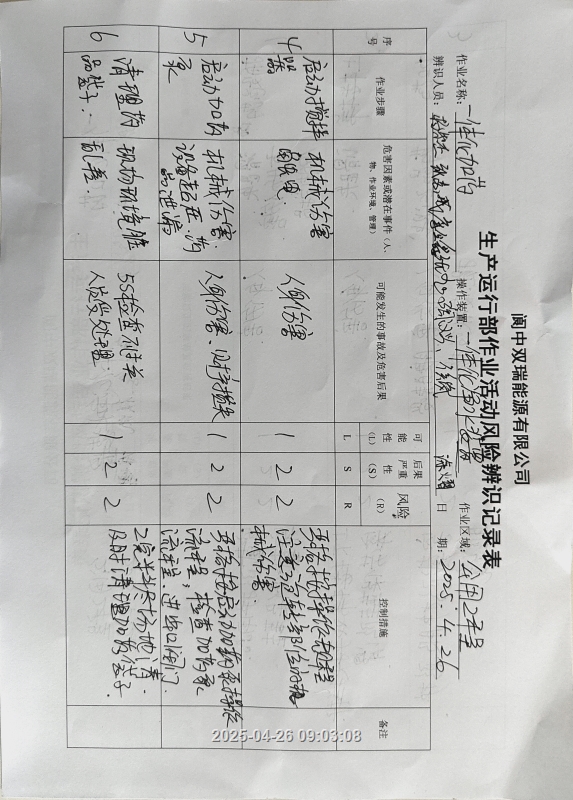 阆中双瑞能源有限公司
生产运行部作业活动风险辨识记录表
作业名称：一体化加药 操作装置：一体化净水装置 作业区域：公用工程
辨识人员： 日 期：2025.4.26
序号 作业步骤 危害因素或潜在事件（人、物、作业环境、管理） 可能发生的事故及危害后果 可能性（L） 后果严重性（S） 风险（R） 控制措施 备注
L S R
4 启动搅拌器 机械伤害 人身伤害 1 2 2 严格按操作规程 注意旋转部位的机械伤害
5 启动加药泵 机械伤害 设备超压、药品泄漏 人身伤害、财产损失 1 2 2 严格按启动加药泵操作流程，检查加药泵流程、进出口阀门
6 清理药品袋子. 现场环境脏乱差. 5S检查不过关 人员受处理. 1 2 2 工完料尽场地清. 及时清理加药袋子.
2025-04-26 09:03:08